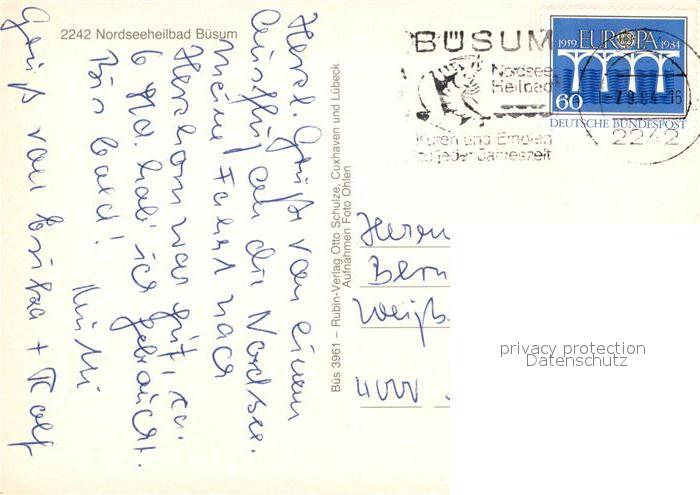 2242 Nordseeheilbad Büsum
Herzl. Grüße von einem
Ausflug an die Nordsee.
Meine Fahrt nach
war gut, ca.
6 Std. hab' ich gebraucht.
Bis bald!
Gruß von + Rolf
Büs 3961 – Rubin-Verlag Otto Schulze, Cuxhaven und Lübeck
Aufnahmen Foto Ohlen
BÜSUM
Nordsee
Heilbad
Kuren und Erholen
zu jeder Jahreszeit
1959 EUROPA 1984
60
DEUTSCHE BUNDESPOST
2242
Herrn
Bern
Weißb
privacy protection
Datenschutz